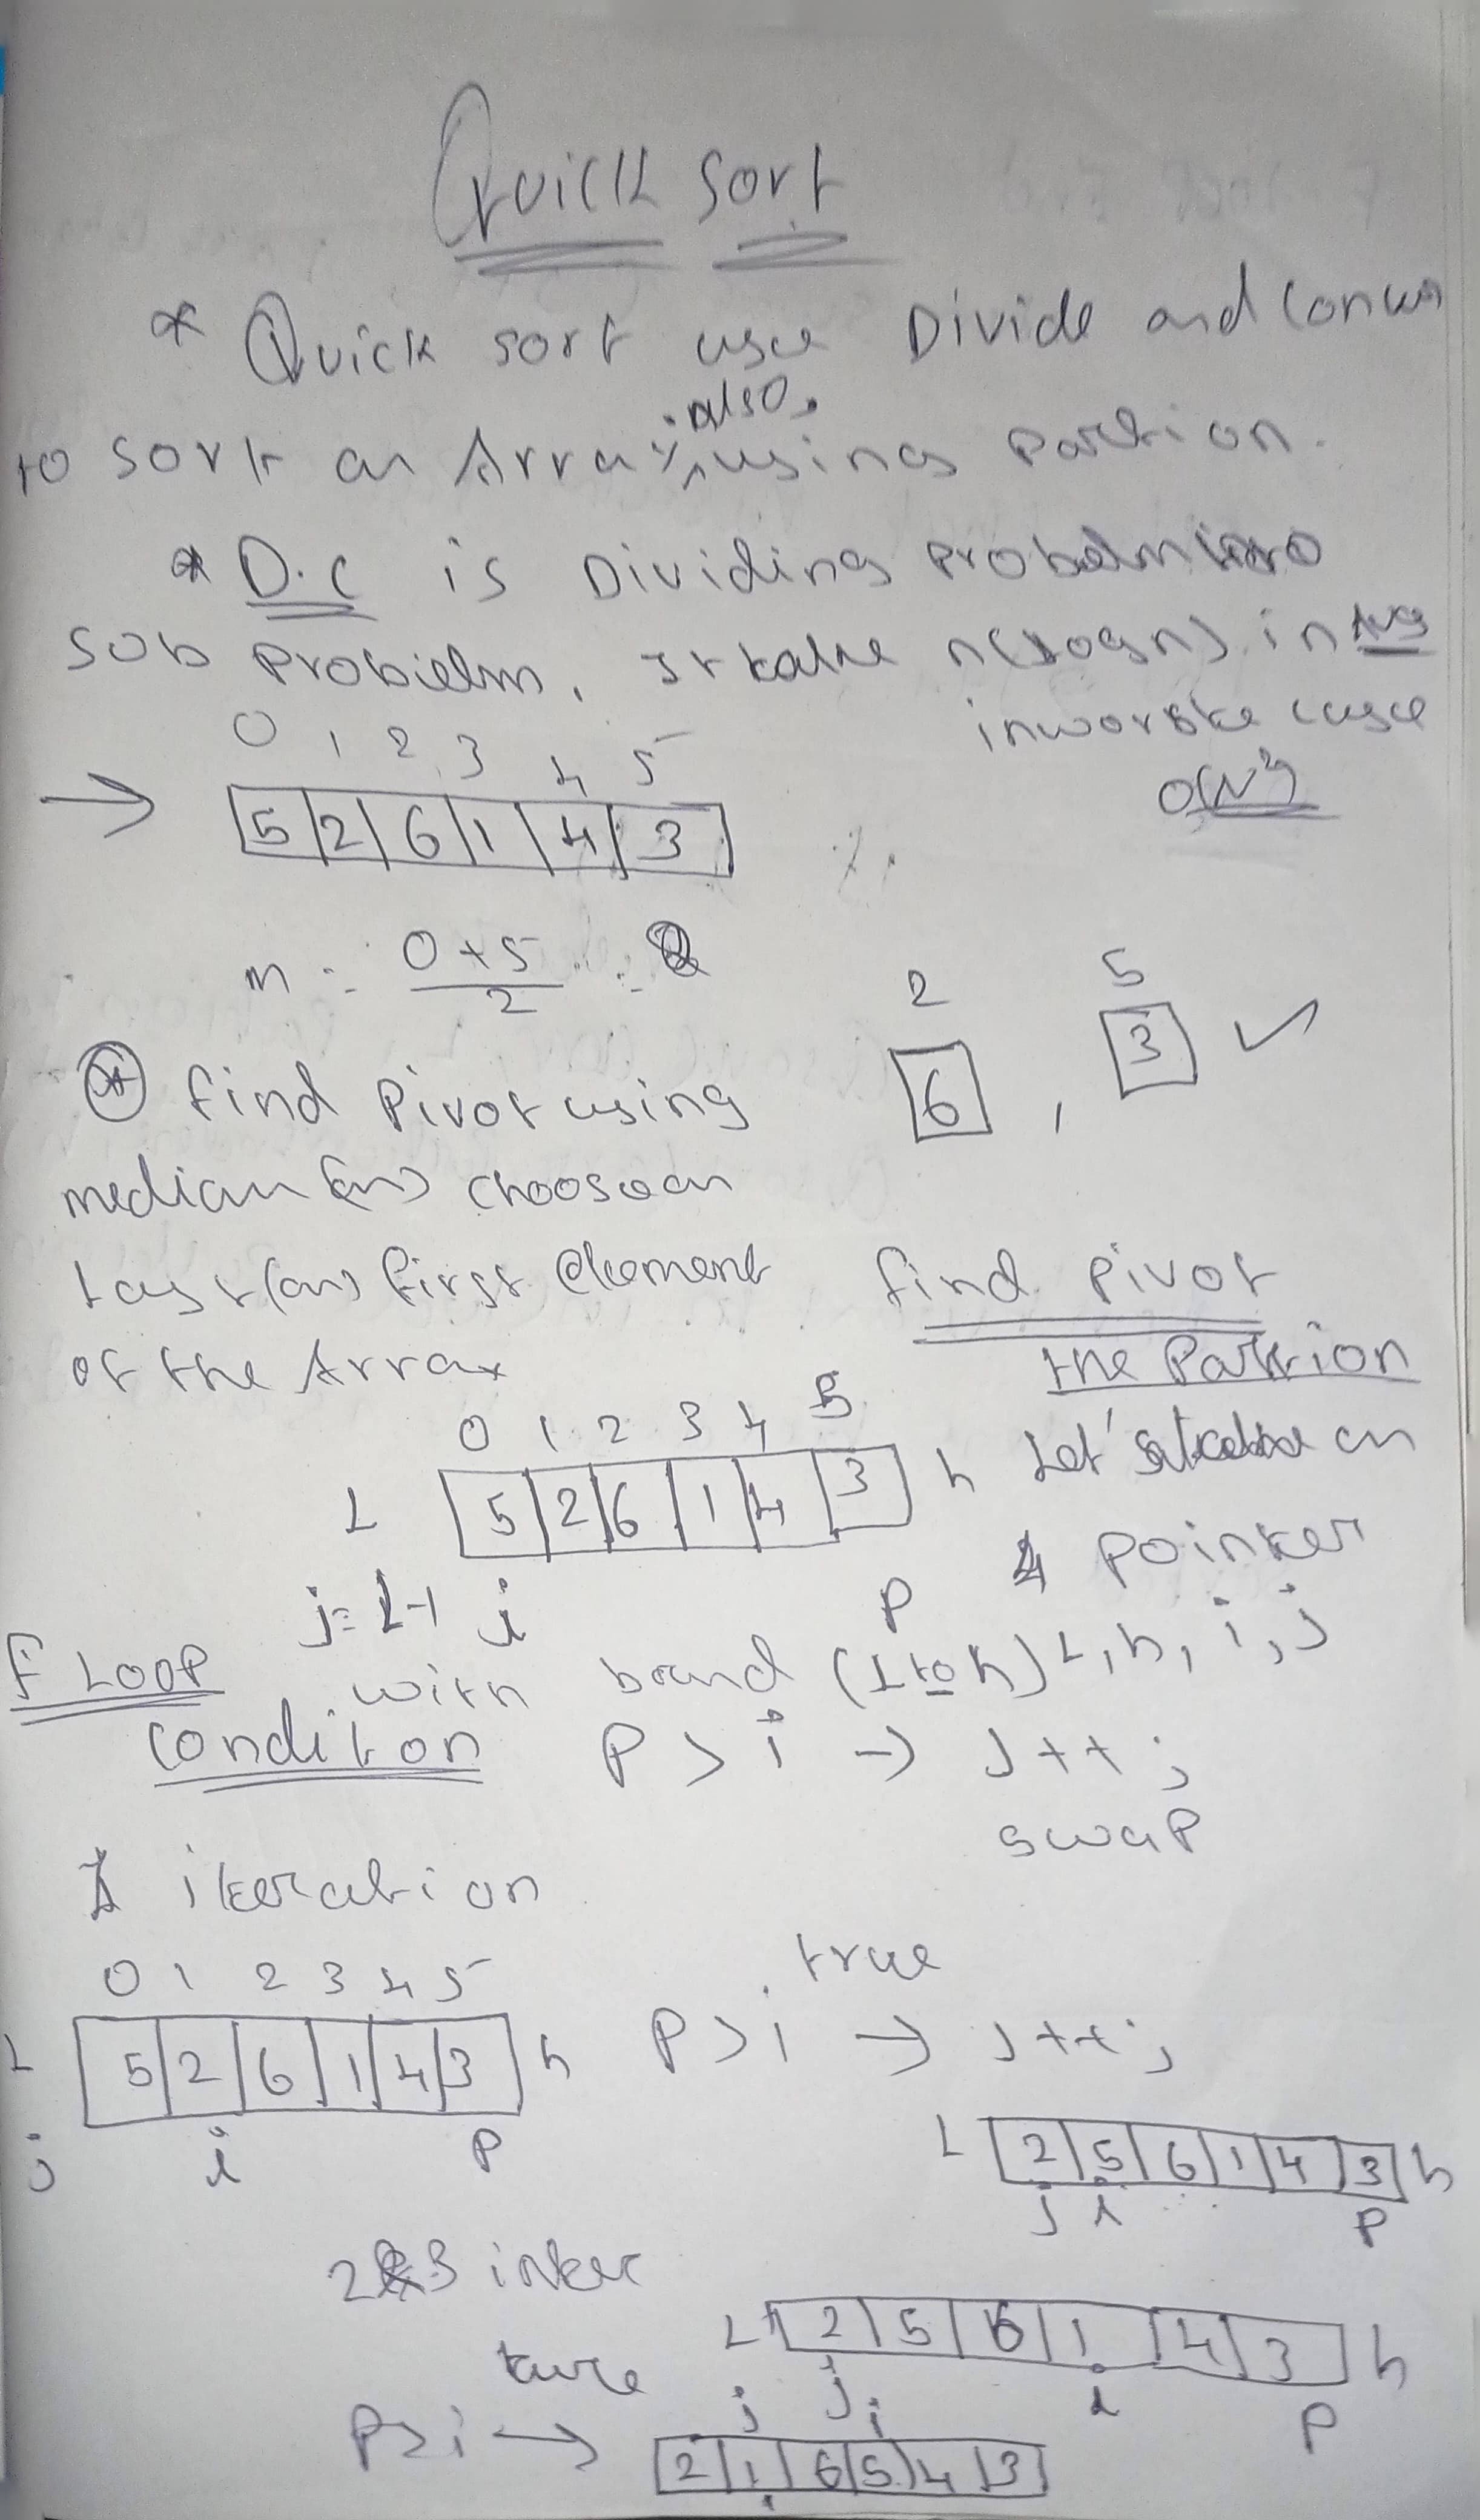 Quick sort
* Quick sort use Divide and Conker
also
to sort an Array, using partion.
* D.C is Dividing probelm into
sub probielm. It take n(logn) in Avg
in worste case
O(N²)
0 1 2 3 4 5
→ 5 2 6 1 4 3
m = 0+5 / 2 = 2
2 5
6 , 3 ✓
* find pivot using
median (or) choose an
Last (or) first element
of the Array
find pivot
the Partion
0 1 2 3 4 5
L 5 2 6 1 4 3 h
Let's take an
4 pointer
L, h, i, j
j= L-1 i P
F Loop with bound (L to h)
conditon P > i → J++;
swap
1 iteration
0 1 2 3 4 5
true
L 5 2 6 1 4 3 h P>i → J++;
j i P
L 2 5 6 1 4 3 h
j i P
2&3 inter
L 2 5 6 1 4 3 h
ture j j i P
P>i → 2 1 6 5 4 3